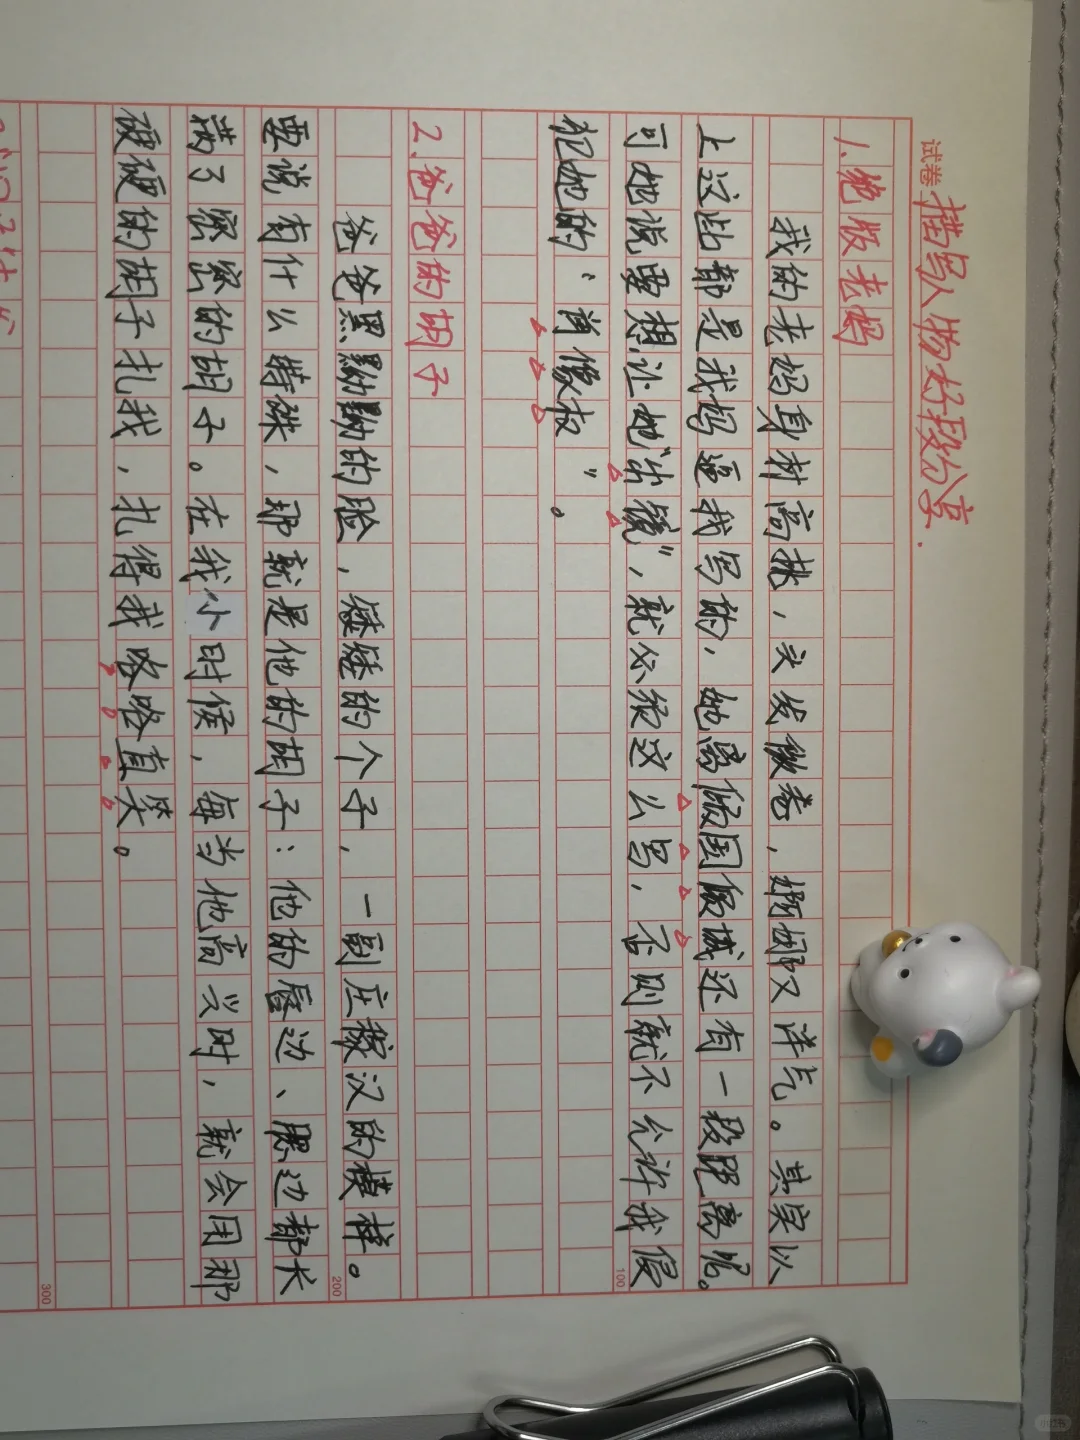 试卷 描写人物好段分享.
1.绝版老妈
我的老妈身材高挑，头发微卷，婀娜又洋气。其实以
上这些都是我妈逼我写的，她离倾国倾城还有一段距离呢。
可她说要想让她“出镜”，就必须这么写，否则就不允许我侵
犯她的“肖像权”。
100
2.爸爸的胡子
爸爸黑黝黝的脸，矮矮的个子，一副庄稼汉的模样。
200
要说有什么特殊，那就是他的胡子：他的唇边、腮边都长
满了密密的胡子。在我小时候，每当他高兴时，就会用那
硬硬的胡子扎我，扎得我咯咯直笑。
300
小红书